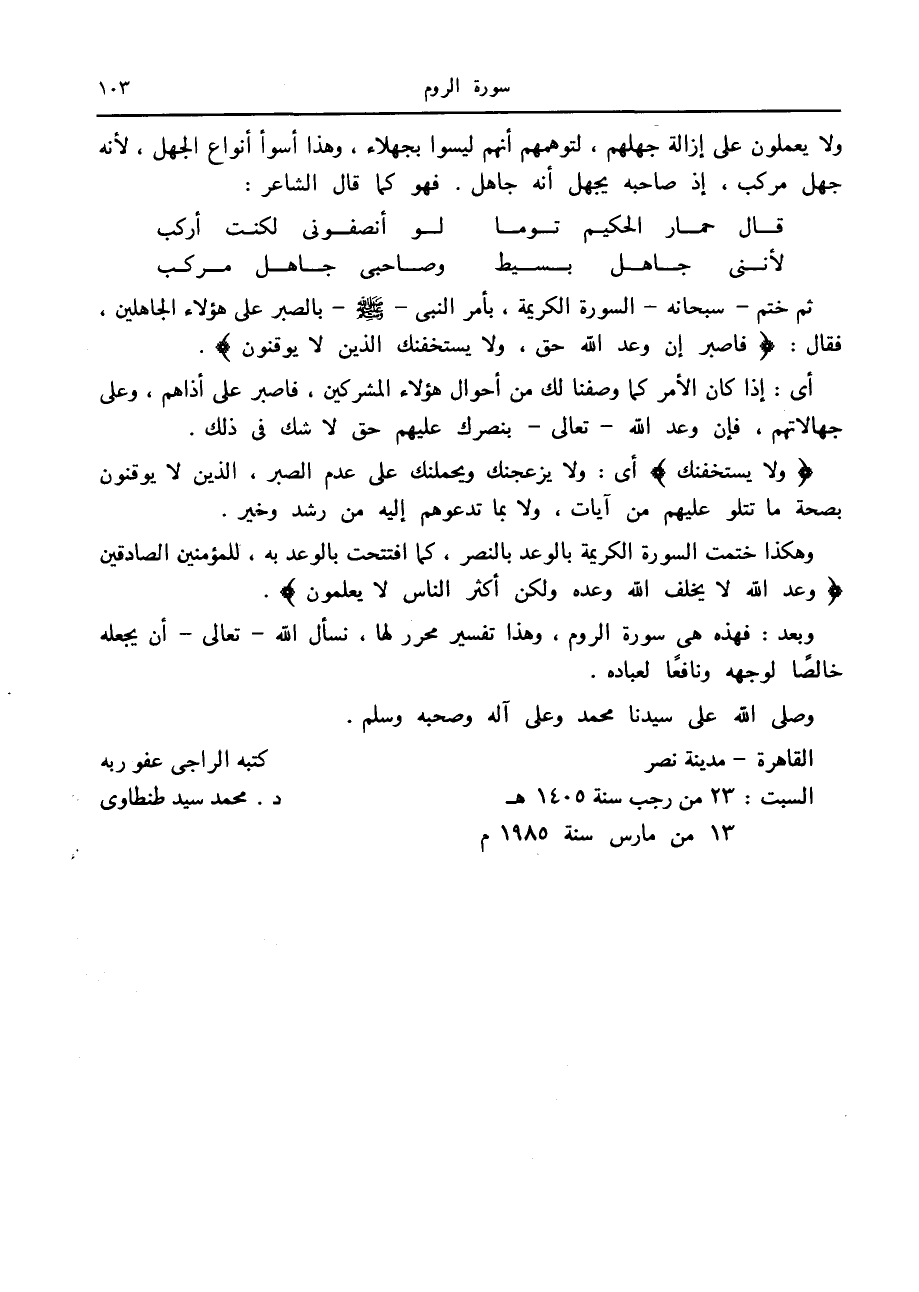 سورة الروم ١٠٣
ولا يعملون على إزالة جهلهم ، لتوهمهم أنهم ليسوا بجهلاء ، وهذا أسوأ أنواع الجهل ، لأنه
جهل مركب ، إذ صاحبه يجهل أنه جاهل . فهو كما قال الشاعر :
قـال حمـار الحكيـم تـومـا لـو أنصفـونى لكنـت أركب
لأنـنى جـاهـل بـسـيط وصـاحبى جـاهـل مـركـب
ثم ختم – سبحانه – السورة الكريمة ، بأمر النبى – ﷺ – بالصبر على هؤلاء الجاهلين ،
فقال : ﴿ فاصبر إن وعد الله حق ، ولا يستخفنك الذين لا يوقنون ﴾ .
أى : إذا كان الأمر كما وصفنا لك من أحوال هؤلاء المشركين ، فاصبر على أذاهم ، وعلى
جهالاتهم ، فإن وعد الله – تعالى – بنصرك عليهم حق لا شك فى ذلك .
﴿ ولا يستخفنك ﴾ أى : ولا يزعجنك ويحملنك على عدم الصبر ، الذين لا يوقنون
بصحة ما تتلو عليهم من آيات ، ولا بما تدعوهم إليه من رشد وخير .
وهكذا ختمت السورة الكريمة بالوعد بالنصر ، كما افتتحت بالوعد به ، للمؤمنين الصادقين
﴿ وعد الله لا يخلف الله وعده ولكن أكثر الناس لا يعلمون ﴾ .
وبعد : فهذه هى سورة الروم ، وهذا تفسير محرر لها ، نسأل الله – تعالى – أن يجعله
خالصًا لوجهه ونافعًا لعباده .
وصلى الله على سيدنا محمد وعلى آله وصحبه وسلم .
القاهرة – مدينة نصر كتبه الراجى عفو ربه
السبت : ٢٣ من رجب سنة ١٤٠٥ هـ د . محمد سيد طنطاوى
١٣ من مارس سنة ١٩٨٥ م